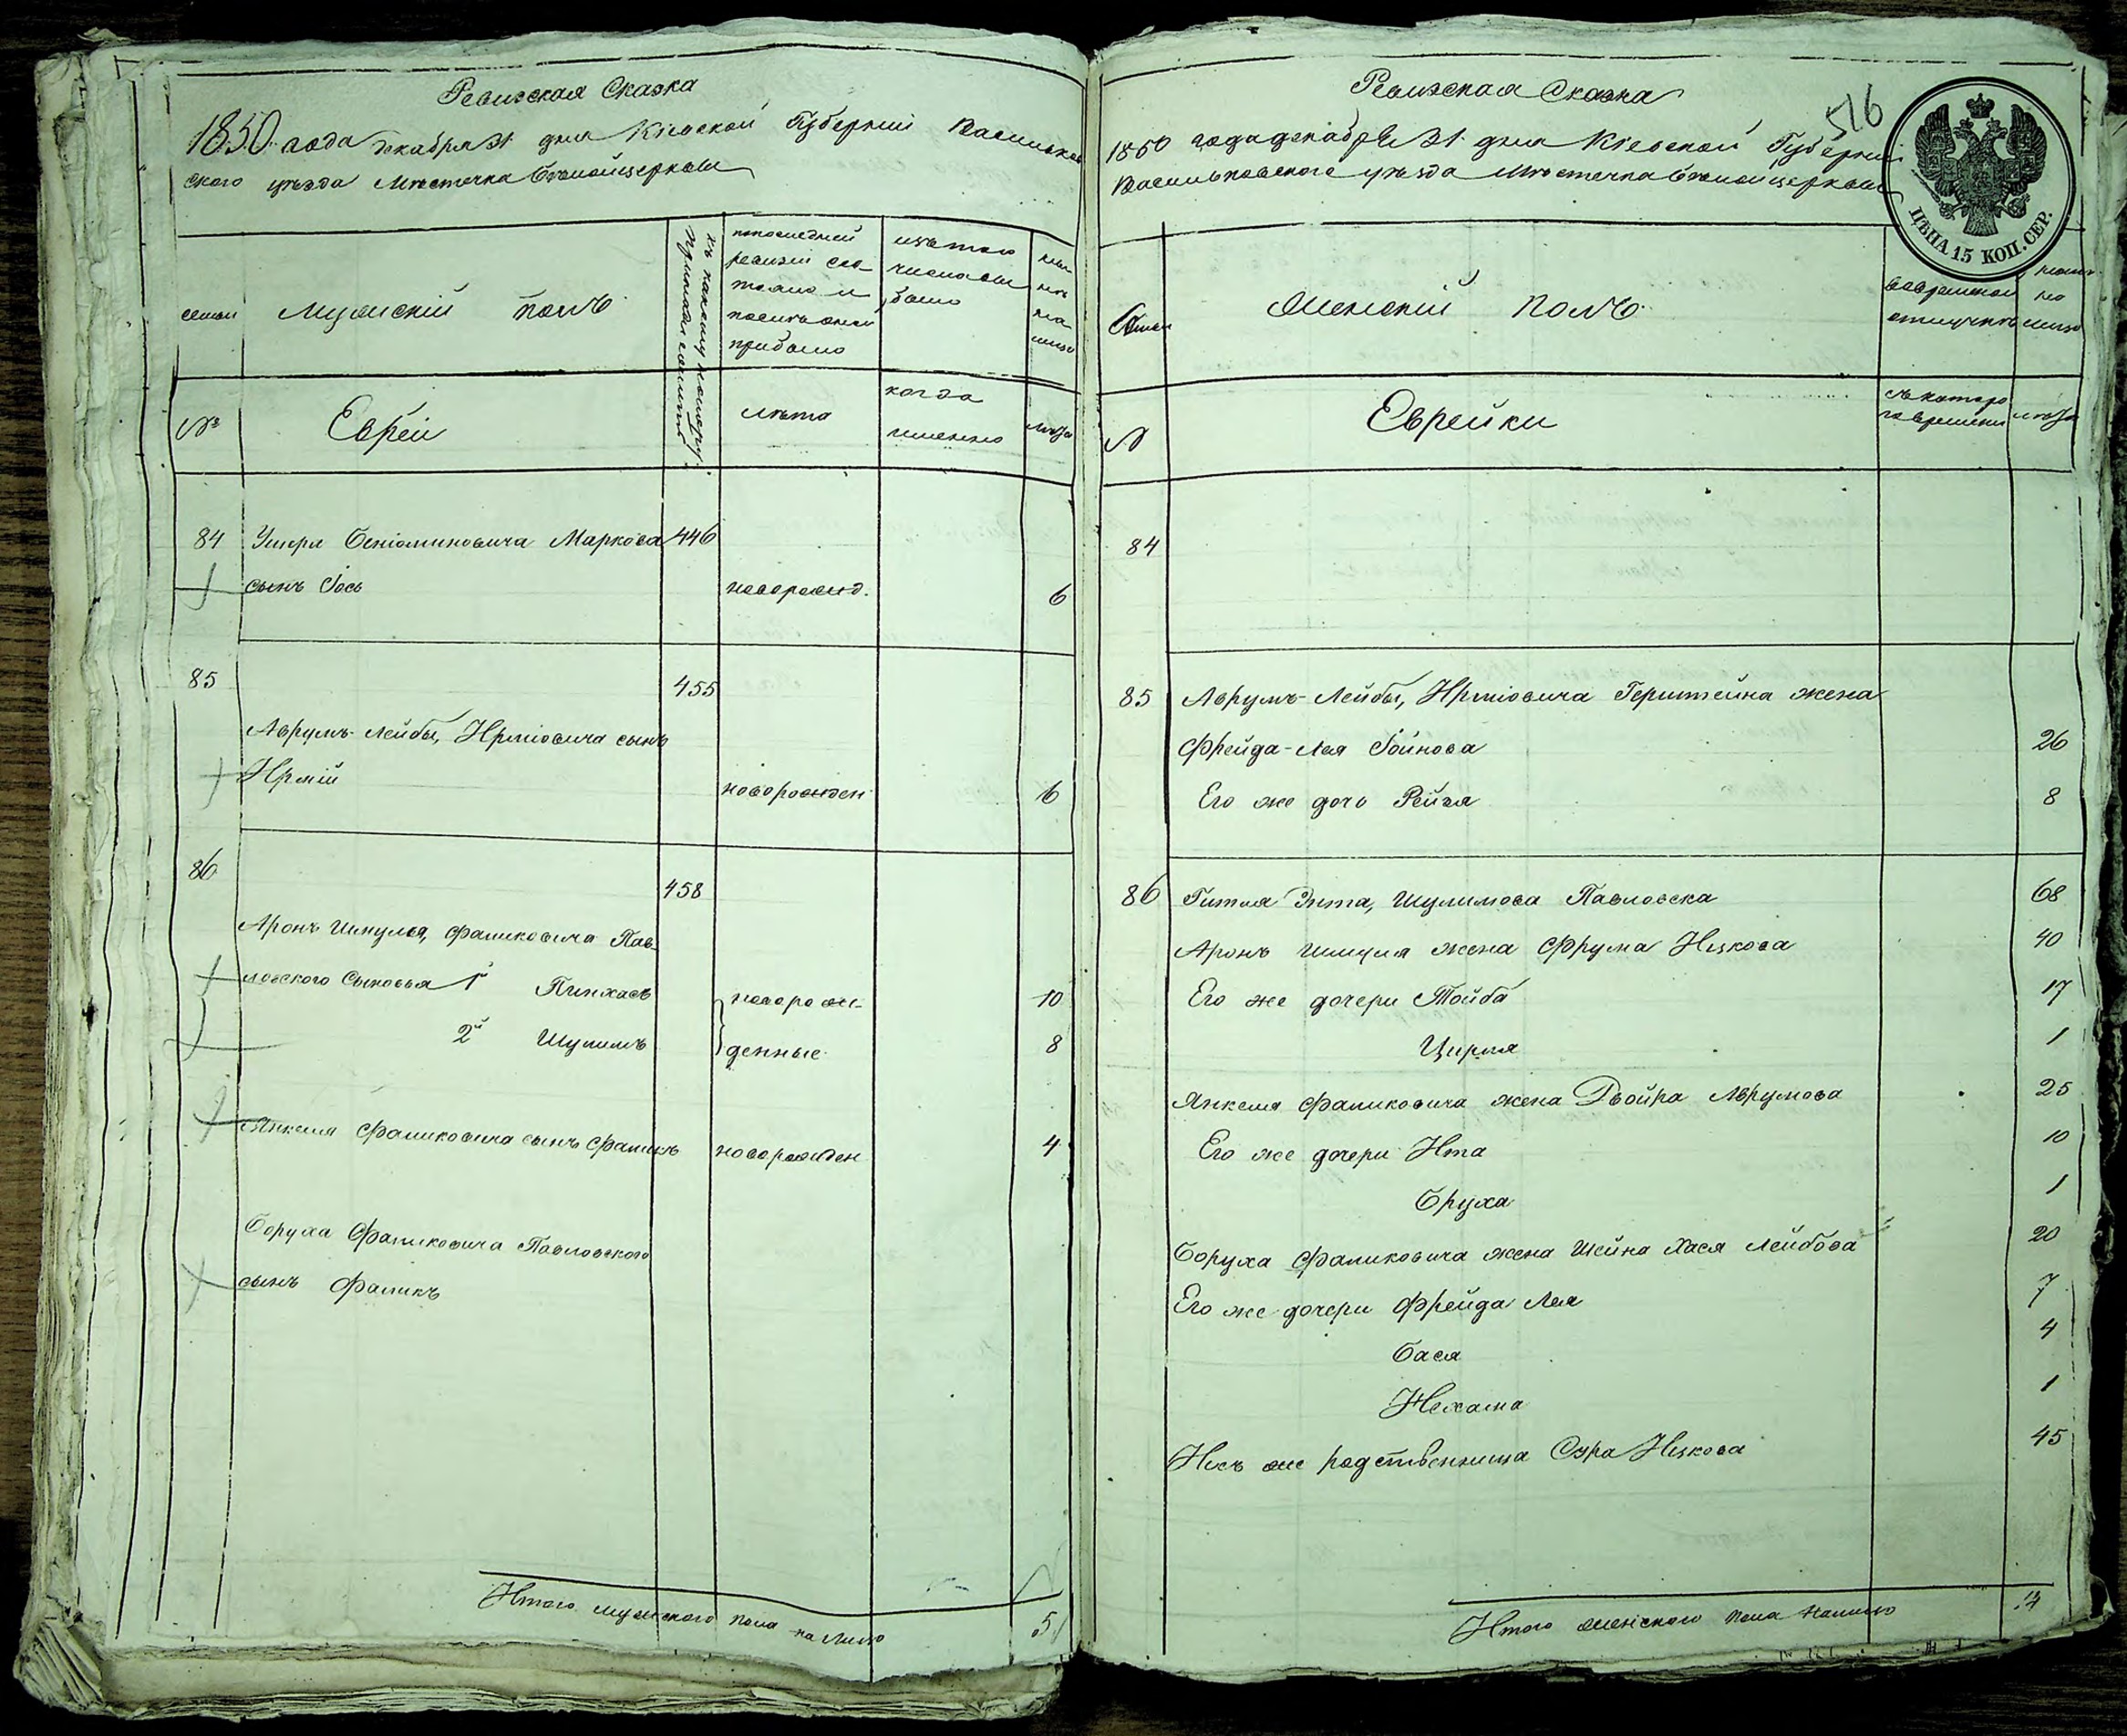 Ревизская Сказка
1850 года декабря 31 дня Кіевской Губерніи Василько
вского уѣзда Мѣстечка Бѣлойцеркви
семьи
Мужскій полъ
въ какому
по последней
ревизіи сос-
тояло и
после оной
прибыло
изъ того
числа вы
было
ны
нѣ
на
лицо
№
Евреи
лѣта
когда
именно
лѣта
84 Умера Беніоминовича Маркова 446
сынъ Іось новорожд. 6
85 455
Аврумъ-Лейбы, Ирміовича сынъ
Ирмій новорожден 16
86 458
Аронъ Шмуля, Фаликовича Пав-
ловского Сыновья 1й Пинхасъ новорож- 10
2й Шулимъ денные 8
Янкеля Фаликовича сынъ Фаликъ новорожден 4
Боруха Фаликовича Павловского
сынъ Фаликъ
Итого мужского пола на лицо 5
Ревизская Сказка
516
1850 года декабря 31 дня Кіевской Губерніи
Васильковского уѣзда Мѣстечка Бѣлойцеркви
ЦѢНА 15 КОП. СЕР.
Семьи
Женскій полъ
во временной
отлучкѣ
ны
на
лицо
№
Еврейки
съ которо
го времени
лѣта
84
85 Аврумъ-Лейбы, Ирміовича Герштейна жена
Фрейда-Лея Іойнова 26
Его же дочь Рейзя 8
86 Гитля Энта, Шулимова Павловска 68
Аронъ Шмуля жена Фрума Ицкова 40
Его же дочери Тойба 17
Цирля 1
Янкеля Фаликовича жена Двойра Аврумова 25
Его же дочери Ита 10
Бруха 1
Боруха Фаликовича жена Шейна Хася Лейбова 20
Его же дочери Фрейда Лея 7
Бася 4
Нехама 1
Ихъ же родственница Сура Ицкова 45
Итого женского пола налицо 14